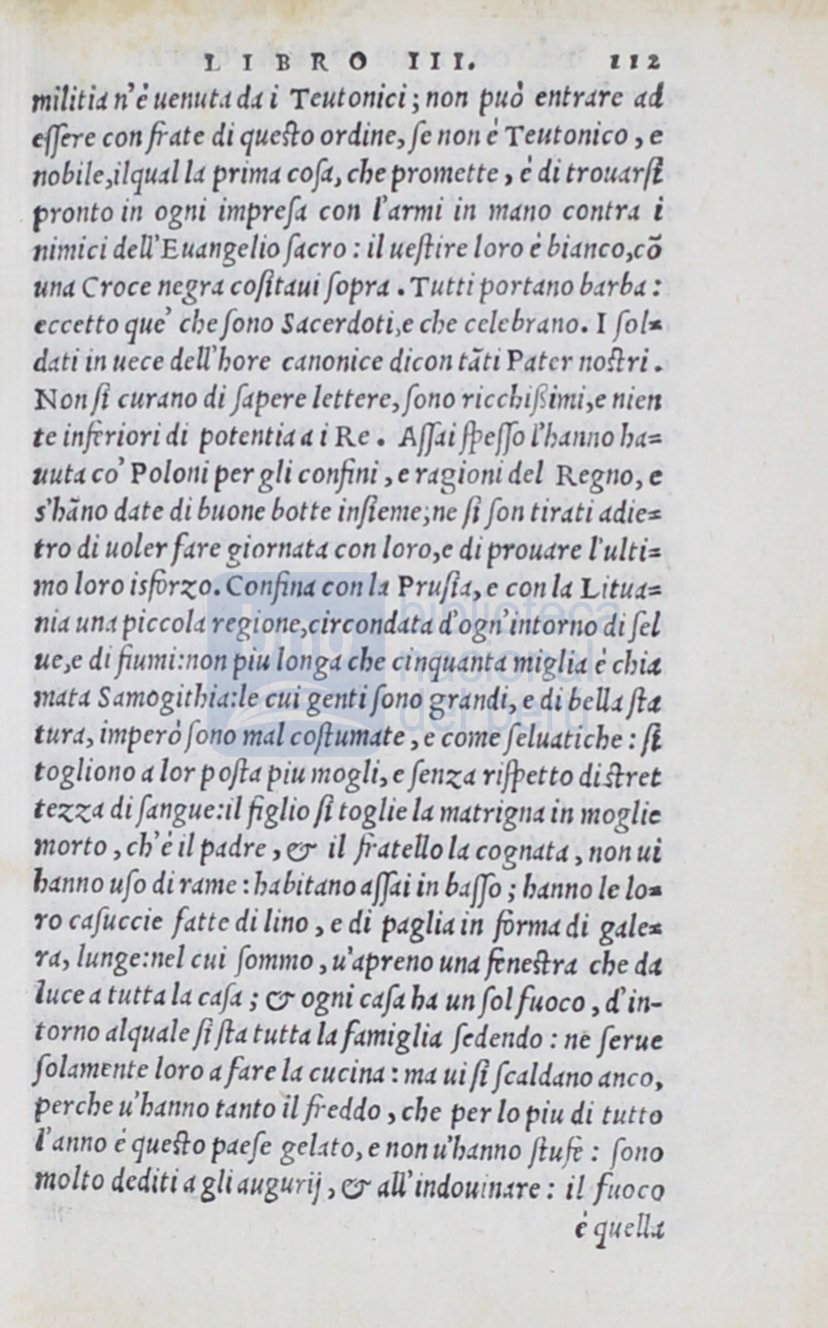 LIBRO III. 112
militia n'è uenuta da i Teutonici; non può entrare ad
eſſere con frate di queſto ordine, ſe non è Teutonico, e
nobile, ilqual la prima coſa, che promette, è di trouarſi
pronto in ogni impreſa con l'armi in mano contra i
nimici dell'Euangelio ſacro: il ueſtire loro è bianco, cõ
una Croce negra coſitaui ſopra. Tutti portano barba:
eccetto que' che ſono Sacerdoti, e che celebrano. I ſol=
dati in uece dell'hore canonice dicon tãti Pater noſtri.
Non ſi curano di ſapere lettere, ſono ricchißimi, e nien
te inferiori di potentia a i Re. Aſſai ſpeſſo l'hanno ha=
uuta co' Poloni per gli confini, e ragioni del Regno, e
s'hãno date di buone botte inſieme; ne ſi ſon tirati adie=
tro di uoler fare giornata con loro, e di prouare l'ulti=
mo loro isforzo. Confina con la Pruſia, e con la Litua=
nia una piccola regione, circondata d'ogn'intorno di ſel
ue, e di fiumi: non piu longa che cinquanta miglia è chia
mata Samogithia: le cui genti ſono grandi, e di bella ſta
tura, imperò ſono mal coſtumate, e come ſeluatiche: ſi
togliono a lor poſta piu mogli, e ſenza riſpetto di ſtret
tezza di ſangue: il figlio ſi toglie la matrigna in moglie
morto, ch'è il padre, & il fratello la cognata, non ui
hanno uſo di rame: habitano aſſai in baſſo; hanno le lo=
ro caſuccie fatte di lino, e di paglia in forma di gale=
ra, lunge: nel cui ſommo, u'apreno una feneſtra che da
luce a tutta la caſa; & ogni caſa ha un ſol fuoco, d'in-
torno alquale ſi ſta tutta la famiglia ſedendo: ne ſerue
ſolamente loro a fare la cucina: ma ui ſi ſcaldano anco,
perche u'hanno tanto il freddo, che per lo piu di tutto
l'anno è queſto paeſe gelato, e non u'hanno ſtufe: ſono
molto dediti a gli augurij, & all'indouinare: il fuoco
è quella
biblioteca
nacional
del perú